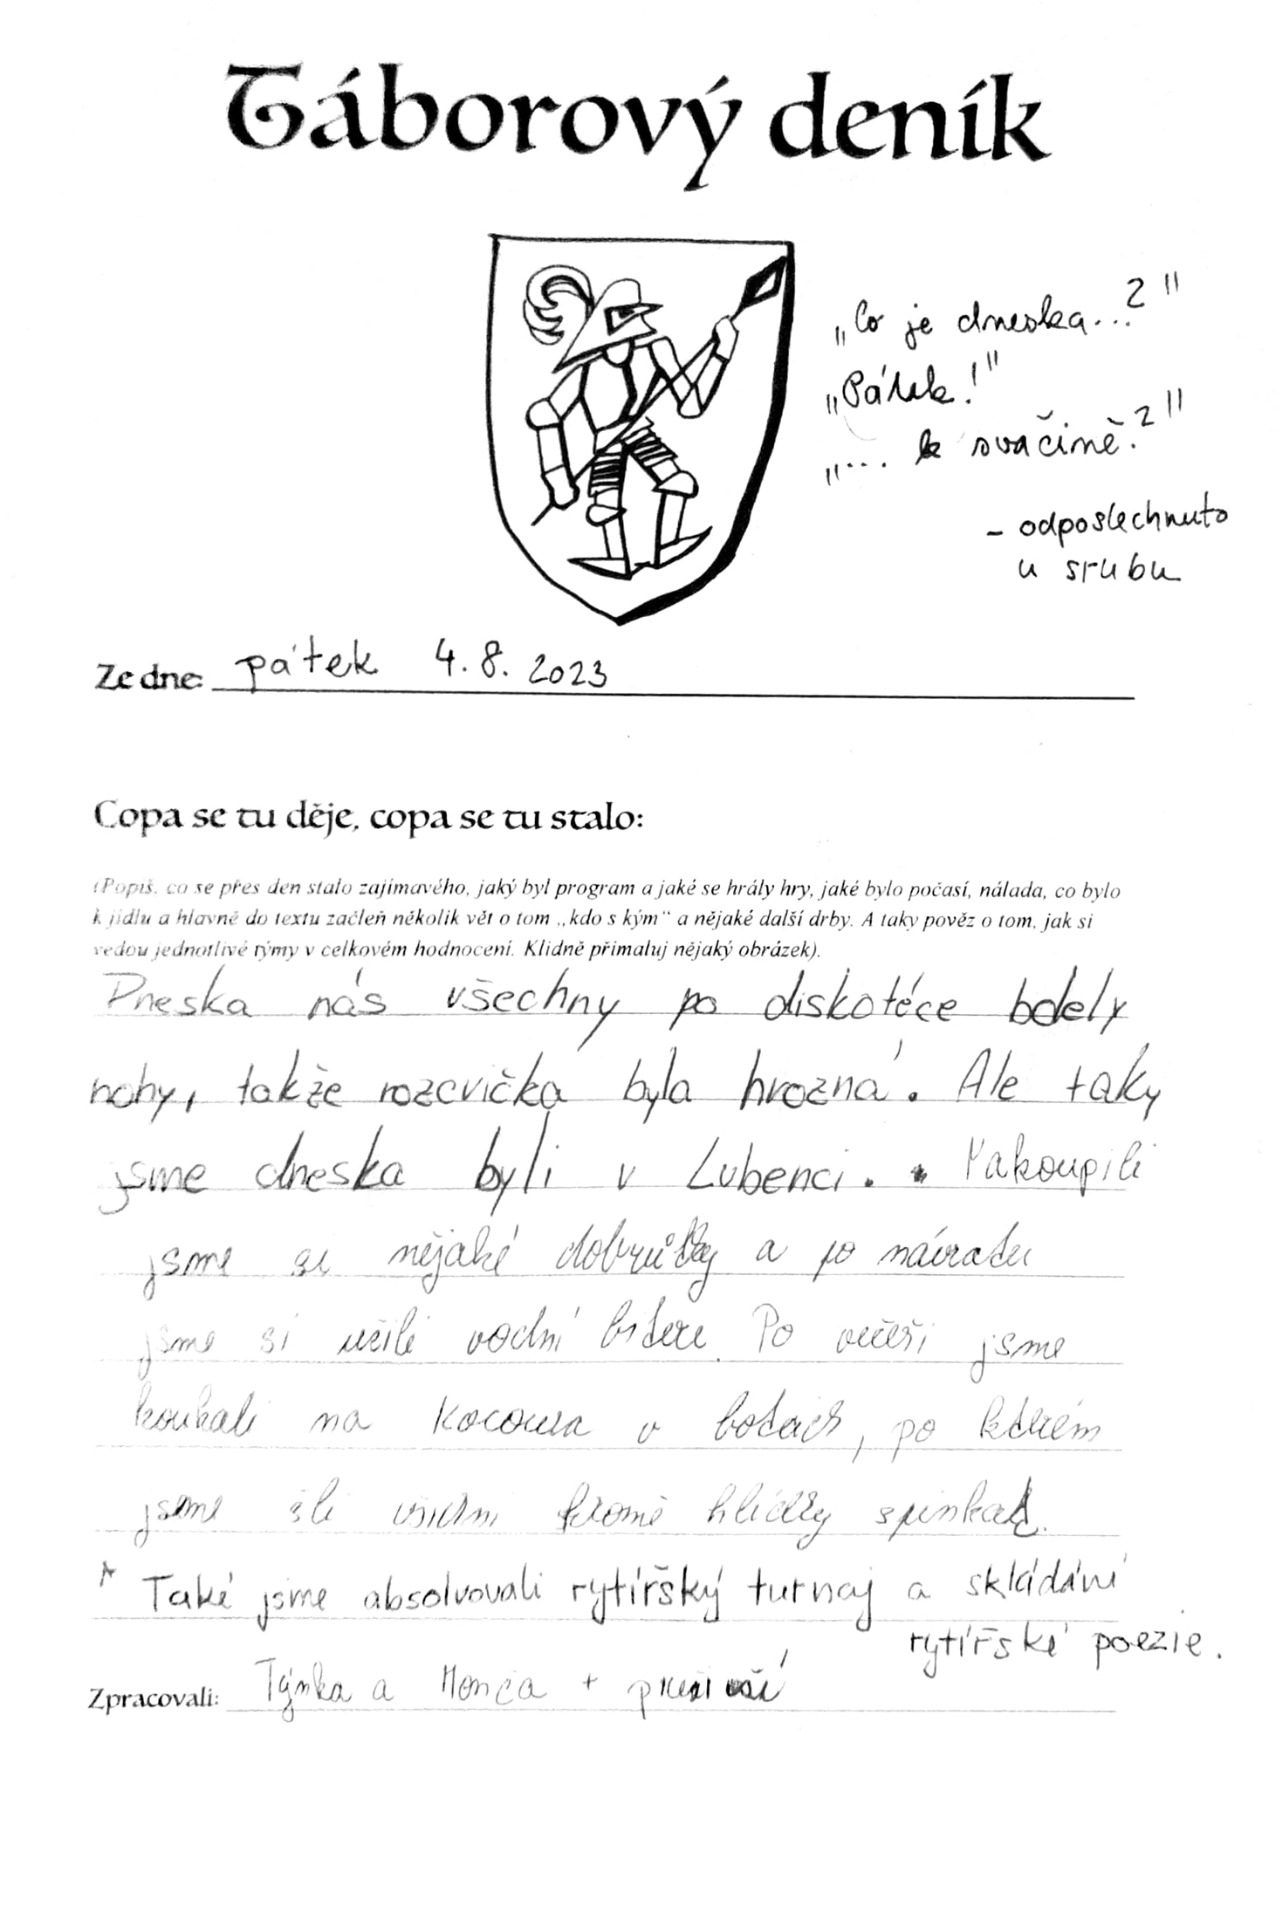 Táborový deník
„Co je dneska...?"
„Pátek!"
„... k svačině?"
- odposlechnuto
u srubu
Ze dne: pátek 4.8. 2023
Copa se tu děje, copa se tu stalo:
(Popiš, co se přes den stalo zajímavého, jaký byl program a jaké se hrály hry, jaké bylo počasí, nálada, co bylo
k jídlu a hlavně do textu začleň několik vět o tom „kdo s kým" a nějaké další drby. A taky pověz o tom, jak si
vedou jednotlivé týmy v celkovém hodnocení. Klidně přimaluj nějaký obrázek).
Dneska nás všechny po diskotéce bolely
nohy, takže rozcvička byla hrozná. Ale taky
jsme dneska byli v Lubenci. * Nakoupili
jsme si nějaké dobrůtky a po návratu
jsme si užili vodní bitvu. Po večeři jsme
koukali na Kocoura v botách, po kterém
jsme šli všichni kromě hlídky spinkat.
* Také jsme absolvovali rytířský turnaj a skládání
rytířské poezie.
Zpracovali: Týnka a Monča +